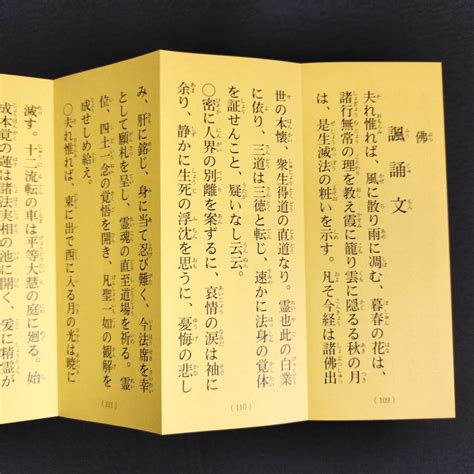 佛
諷誦文
夫れ惟れば、風に散り雨に凋む、暮春の花は、
諸行無常の理を教え霞に籠り雲に隠るる秋の月
は、是生滅法の粧いを示す。凡そ今経は諸佛出
（109）
世の本懐、衆生得道の直道なり。霊也此の白業
に依り、三道は三徳と転じ、速かに法身の覚体
を証せんこと、疑いなし云云。
〇密に人界の別離を案ずるに、哀情の涙は袖に
余り、静かに生死の浮沈を思うに、憂悔の悲し
（110）
み、肝に銘じ、身に当て忍び難く、今法席を幸
として願札を呈し、霊魂の直至道場を祈る。霊
位、四土一念の覚悟を開き、凡聖一如の観解を
成せしめ給え。
〇夫れ惟れば、東に出で西に入る月の光は暁に
（111）
滅す。十二流転の車は平等大慧の庭に廻る。始
成本覚の蓮は諸法実相の池に開く、爰に精霊が